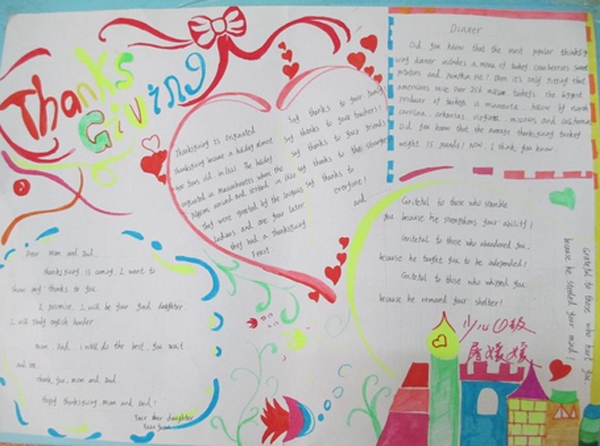 Thanks
Giving
Thanksgiving is originated.
thanksgiving became a holiday almost
two years old. in 1863 The holiday
originated in Massachusetts when the
Pilgrims arrived and settled in
They were greeted by the Indians
Indians and one year later
they had a thanksgiving
Feast
Say thanks to your family
Say thanks to your teachers!
Say thanks to your friends
Say thanks to the strangers
Say thanks to
everyone!
and
Dinner
Did you know that the most popular thanksgi
ving dinner includes a menu of turkey cranberries sweet
potatoes and pumpkin pie? Then it's only fitting that
americans raise over 256 million turkeys. The biggest
producer of turkeys is minnesota. follow by north
carolina, arkansas virginia, missouri and california
Did you know that the average thanksgiving turkey
weighs 15 pounds! NOW, I think you know.
Dear mom and dad.
Thanksgiving is coming. I want to
show my thanks to you.
I promise. I will be your good daughter.
I will study english harder
mom, Dad. i will do the best. you wait
and see.
Thank you, mom and dad
Happy thanksgiving, mom and dad!
Your dear daughter
Grateful to those who stumble
you because he strengthens your ability!
Grateful to those who abandoned you,
because he taught you to be independed!
Grateful to those who whipped you.
because he removed your shelter!
Grateful to those who hurt you.
because he steeled your mind!